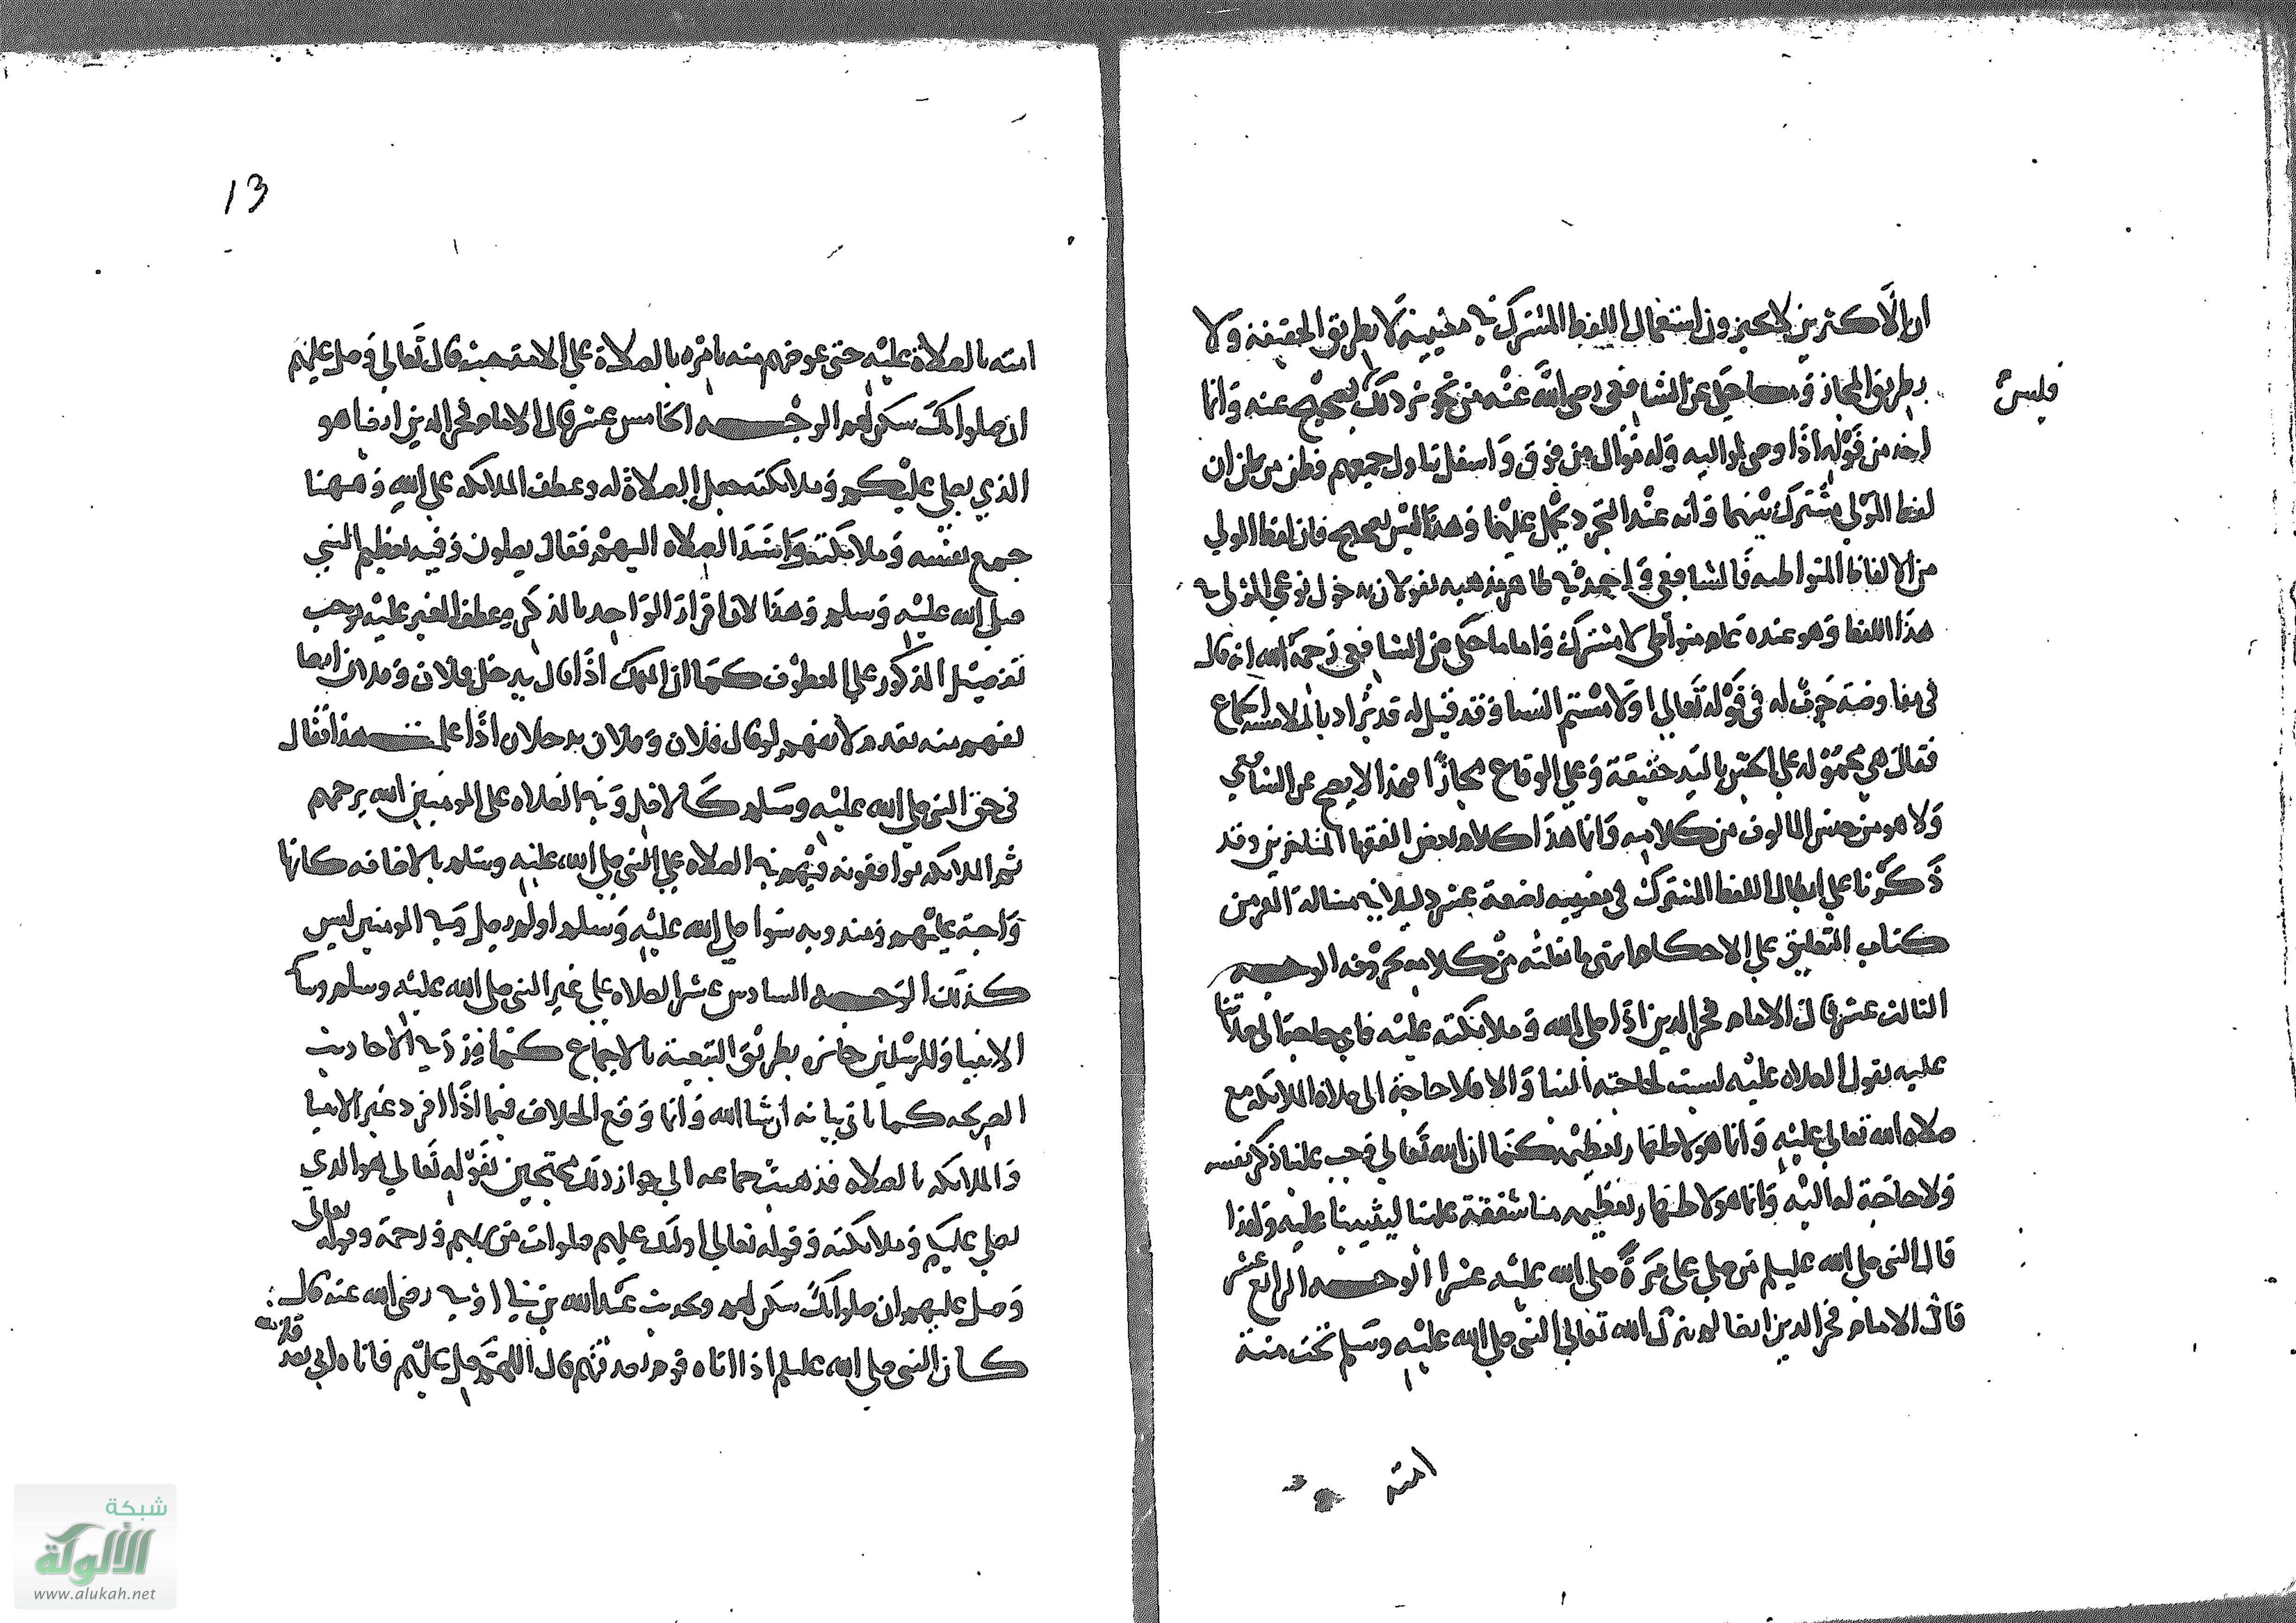 ان الاكثرين لا يجيزون استعمال اللفظ المشترك في معنييه لا بطريق الحقيقة ولا
بطريق المجاز وما حكي عن الشافعي رضي الله عنه من تجويز ذلك بصحيح عنه وانما
فليس
اخذ من قوله اذا وصى لمواليه وله موال من فوق واسفل تناول جميعهم فظن من ظن ان
لفظ المولى مشترك بينهما وانه عند التجرد يحمل عليهما وهذا ليس بصحيح فان لفظ المولى
من الالفاظ المتواطيه فالشافعي واحمد في ظاهر مذهبه يقولان بدخول نوعي المولى في
هذا اللفظ وهو عنده عام متواطي لا مشترك واما ما حكي عن الشافعي رحمه الله انه قال
في مفاوضة جرت له في قوله تعالى او لامستم النسا وقد قيل له قد يراد بالملامسة الجماع
فقال هي محمولة على الجس باليد حقيقة وعلى الوقاع مجازا فهذا لا يصح عن الشافعي
ولا هو من جنس المالوف من كلامه وانما هذا كلام بعض الفقها المتاخرين وقد
ذكرنا على ابطال اللفظ المشترك في معنييه بضعة عشر دليلا في مسالة القرء من
كتاب التعليق على الاحكام انتهى ما نقلته من كلامه بحروفه الوجه
الثالث عشر قال الامام فخر الدين اذا صلى الله وملائكته عليه فاي حاجة الى صلاتنا
عليه نقول الصلاه عليه ليست لحاجته الينا والا فلا حاجة الى صلاه الملائكه مع
صلاه الله تعالى عليه وانما هو لاظهار تعظيمه كما ان الله تعالى اوجب علينا ذكر نفسه
ولا حاجة له اليه وانما هو لاظهار تعظيمه منا شفقة علينا ليثيبنا عليه ولهذا
قال النبي صلى الله عليه وسلم من صلى علي مرة صلى الله عليه عشرا الوجه الرابع عشر
قال الامام فخر الدين ايضا لم يترك الله تعالى النبي صلى الله عليه وسلم تحت منة
امته
13
امته بالصلاة عليه حتى عوضهم منه بامره بالصلاة على الامة حيث قال تعالى وصل عليهم
ان صلواتك سكن لهم الوجه الخامس عشر قال الامام فخر الدين ايضا هو
الذي يصلي عليكم وملائكته جعل الصلاة له وعطف الملائكه على الله وههنا
جمع نفسه وملائكته واسند الصلاه اليهم فقال يصلون وفيه تعظيم النبي
صلى الله عليه وسلم وهذا لان افراد الواحد بالذكر وعطف الغير عليه يوجب
تفضيل المذكور على المعطوف كما ان الملك اذا قال يدخل فلان وفلان ايضا
يفهم منه تقدم لا يفهم لو قال فلان وفلان يدخلان اذا علمت هذا فقال
في حق النبي صلى الله عليه وسلم كالاصل وفي الصلاه على المومنين الله يرحمهم
ثم الملائكه يوافقونه فهم في الصلاه على النبي صلى الله عليه وسلم بالاضافه كانها
واجبة عليهم ومندوبه سوا صلى الله عليه وسلم او لم يصل وفي المومنين ليس
كذلك الوجه السادس عشر الصلاه على غير النبي صلى الله عليه وسلم وساير
الانبيا والمرسلين جائز بطريق التبعية بالاجماع كما ورد في الاحاديث
الصريحه كما ياتي بيانه ان شا الله وانما وقع الخلاف فيما اذا افرد غير الانبيا
والملائكه بالصلاه فذهبت جماعه الى جواز ذلك محتجين بقوله تعالى هو الذي
يصلي عليكم وملائكته وقوله تعالى اولئك عليهم صلوات من ربهم ورحمة وقوله تعالى
وصل عليهم ان صلواتك سكن لهم وبحديث عبد الله بن ابي اوفى رضي الله عنه قال
كان النبي صلى الله عليه وسلم اذا اتاه قوم بصدقتهم قال اللهم صل عليهم فاتاه ابي بصدقته
شبكة
الألوكة
www.alukah.net